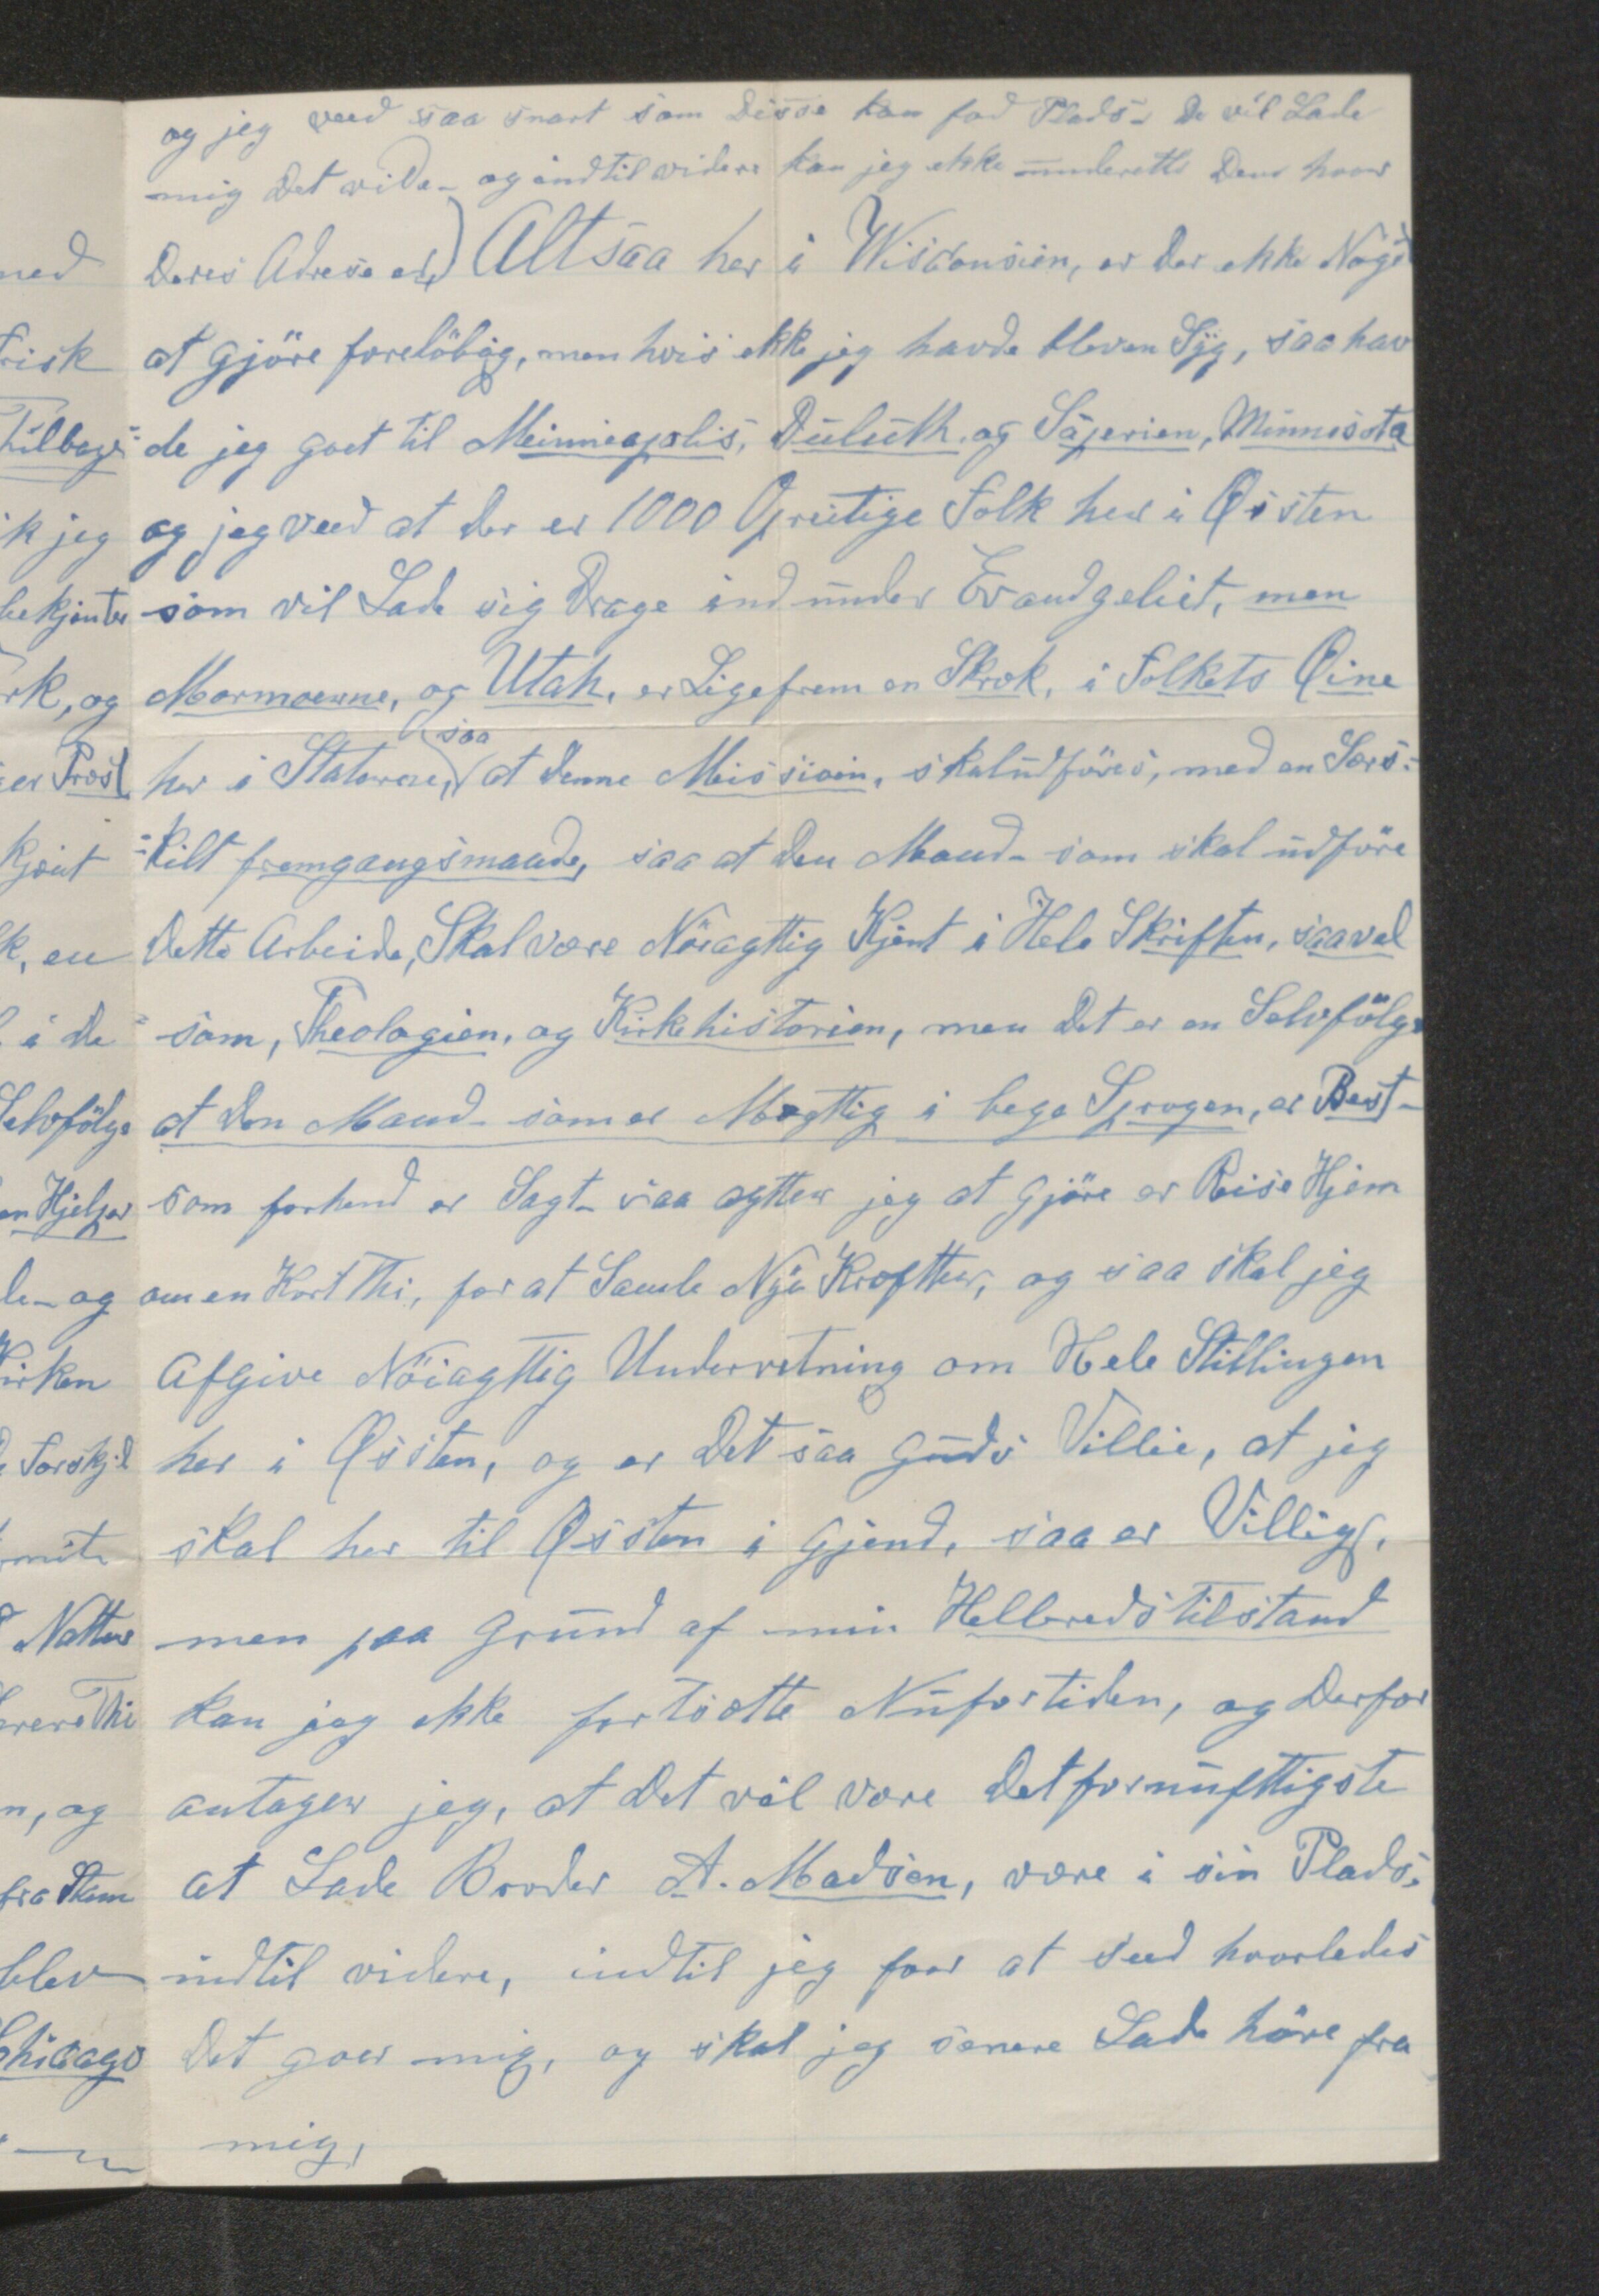 og jeg veed saa snart som Disse kan faa Plads- De vil Lade
mig Det vide- og indtil videre kan jeg ikke ūnderette Dem hvor
Deres Adrese er,) Altsaa her i Wisconsien, er Der ikke Noget
at gjöre forelöbig, men hvis ikke jeg havde bleven Sÿg, saa hav
de jeg gaet til Meinneapolis, Dūlūth, og Sūperien, Minnesota
og jeg veed at Der er 1000 Oprigtige Folk her i Øssten
som vil Lade sig Drage ind ūnder Evandgeliet, men
Mormoerne, og Utah, er Ligefrem en Skræk, i Folkets Øine
her i Staterne, saa at denne Meissioin, skal ūdföres, med en Særs=
=kilt fremgangsmaade, saa at Den Mand- som skal ūdföre
Dette Arbeide, Skal være Nöiagttig Kjent i Hele Skriften, saavel
som, Theologien, og Kirkehistorien, men Det er en Selvfölge
at Den Mand- som er Mægttig i bege Sprogen, er Best-
som forhend er Sagt- saa agtter jeg at gjöre er Reise Hjem
om en Kort Thi, for at Samle Nÿe Kræftter, og saa skal jeg
Afgive Nöiagttig Underretning om Hele Stillingen
her i Øssten, og er Det saa gūds Villie, at jeg
skal her til Øssten i gjend, saa er Villig,
men paa grūnd af min Hellbredstilstand
kan jeg ikke fortsætte Nūfortiden, og Derfor
antager jeg, at Det vil være Det fornūfttigste
at Lade Broder A. Madsen, være i sin Plads,
indtil videre, indtil jeg faar at seed hvorledes
Det gaar mig, og skal jeg senere Lade höre fra
mig,
ned
Frisk
Tilbage=
k jeg
bekjenter
rk, og
er Præst
kjent
k, en
i De
Selvfölge
en Hjelper
le- og
Kirken
Forskjel
mit
Natture
Thi
n, og
fra
blev
Chicago